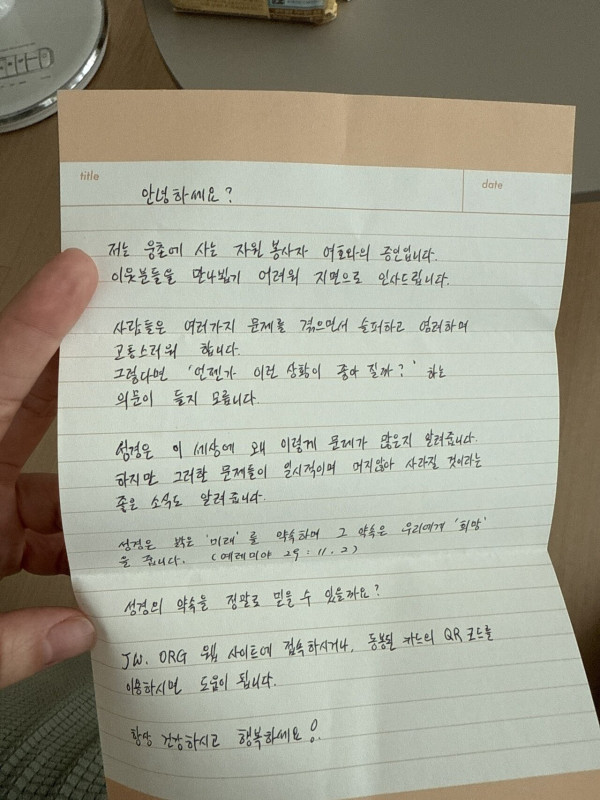 title
date
안녕하세요?
저는 웅촌에 사는 자원 봉사자 여호와의 증인입니다.
이웃분들을 만나뵙기 어려워 지면으로 인사드립니다.
사람들은 여러가지 문제를 겪으면서 슬퍼하고 염려하며
고통스러워 합니다.
그렇다면 '언젠가 이런 상황이 좋아 질까?' 하는
의문이 들지 모릅니다.
성경은 이 세상에 왜 이렇게 문제가 많은지 알려줍니다.
하지만 그러한 문제들이 일시적이며 머지않아 사라질 것이라는
좋은 소식도 알려 줍니다.
성경은 밝은 '미래'를 약속하며 그 약속은 우리에게 '희망'
을 줍니다. (예레미야 29:11. 2)
성경의 약속을 정말로 믿을 수 있을까요?
JW. ORG 웹 사이트에 접속하시거나, 동봉된 카드의 QR 코드를
이용하시면 도움이 됩니다.
항상 건강하시고 행복하세요!